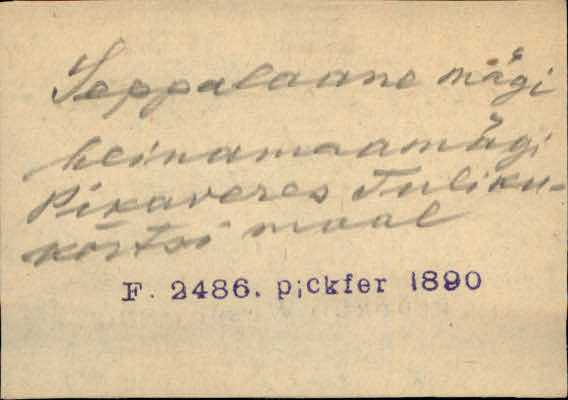 Seppalaane mägi
heinamaamägi
Pikaveres Tuliku-
kõrtsi maal
F. 2486. pickfer 1890